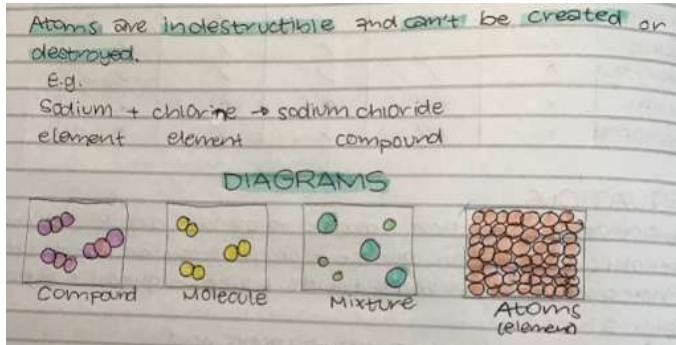 Atoms are indestructible and can't be created or
destroyed.
E.g.
Sodium + chlorine → sodium chloride
element element compound
DIAGRAMS
Compound Molecule Mixture Atoms
(element)